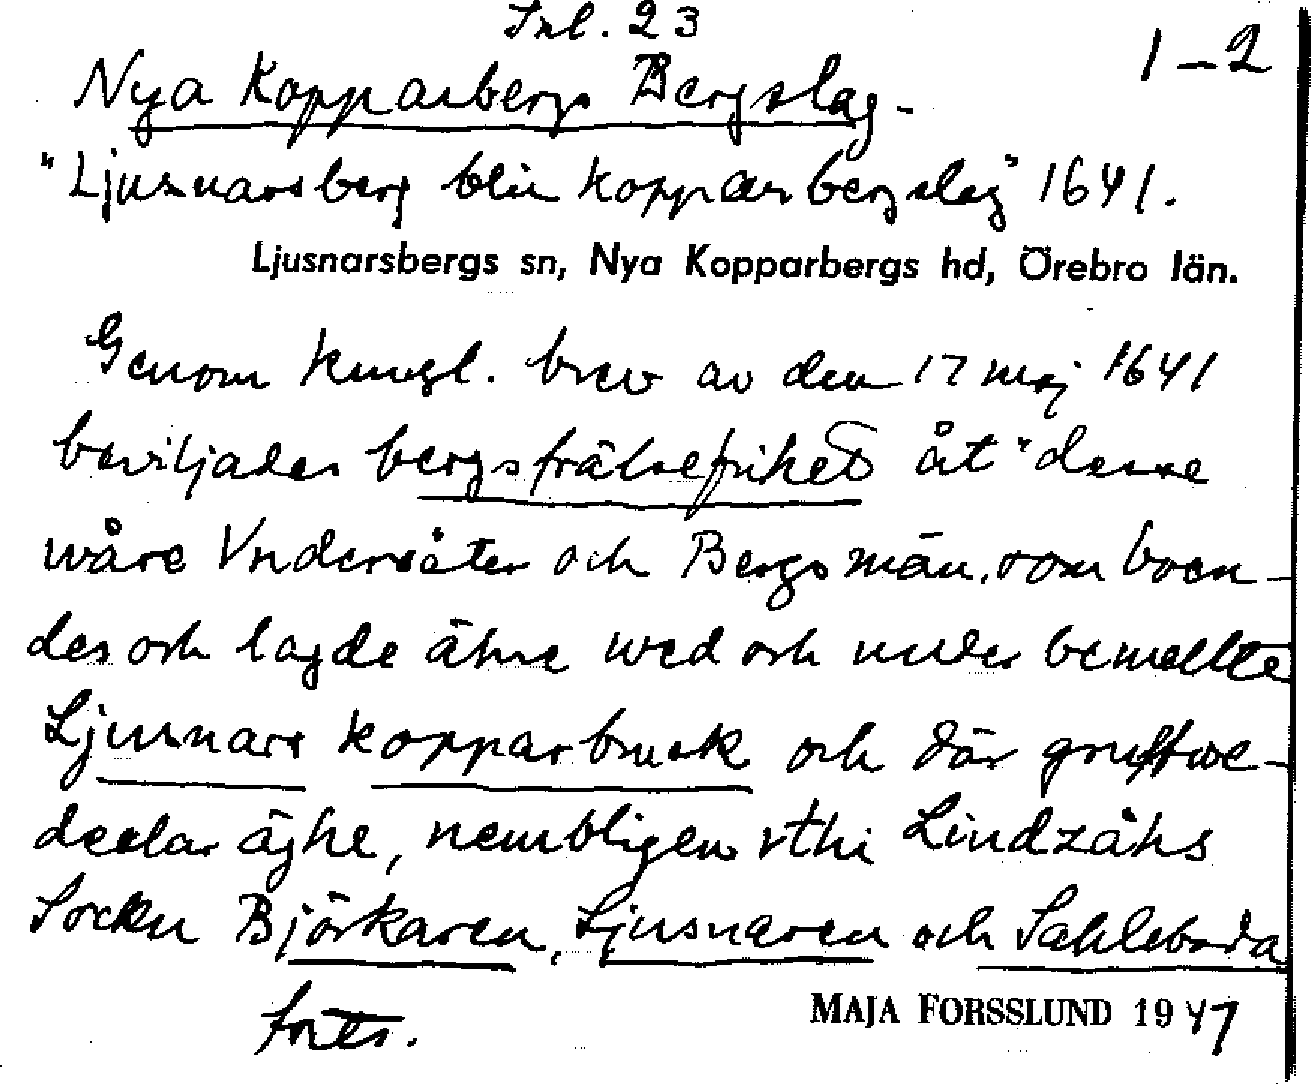 Inl. 23
1-2
Nya Kopparbergs Bergslag.
"Ljusnarsberg blir kopparbergslag" 1641.
Ljusnarsbergs sn, Nya Kopparbergs hd, Örebro län.
Genom kungl. brev av den 17 maj 1641
beviljades bergsfrälsefrihet åt "desse
wåre Vndersåter och Bergsmän, som boen-
des och lagde ähre wed och under bemellte
Ljusnars kopparbruck och där gruffwe-
deelar äghe, nembligen vthi Lindzåhs
Socken Björkaren, Ljusnaren och Sahleboda
forts.
MAJA FORSSLUND 1947